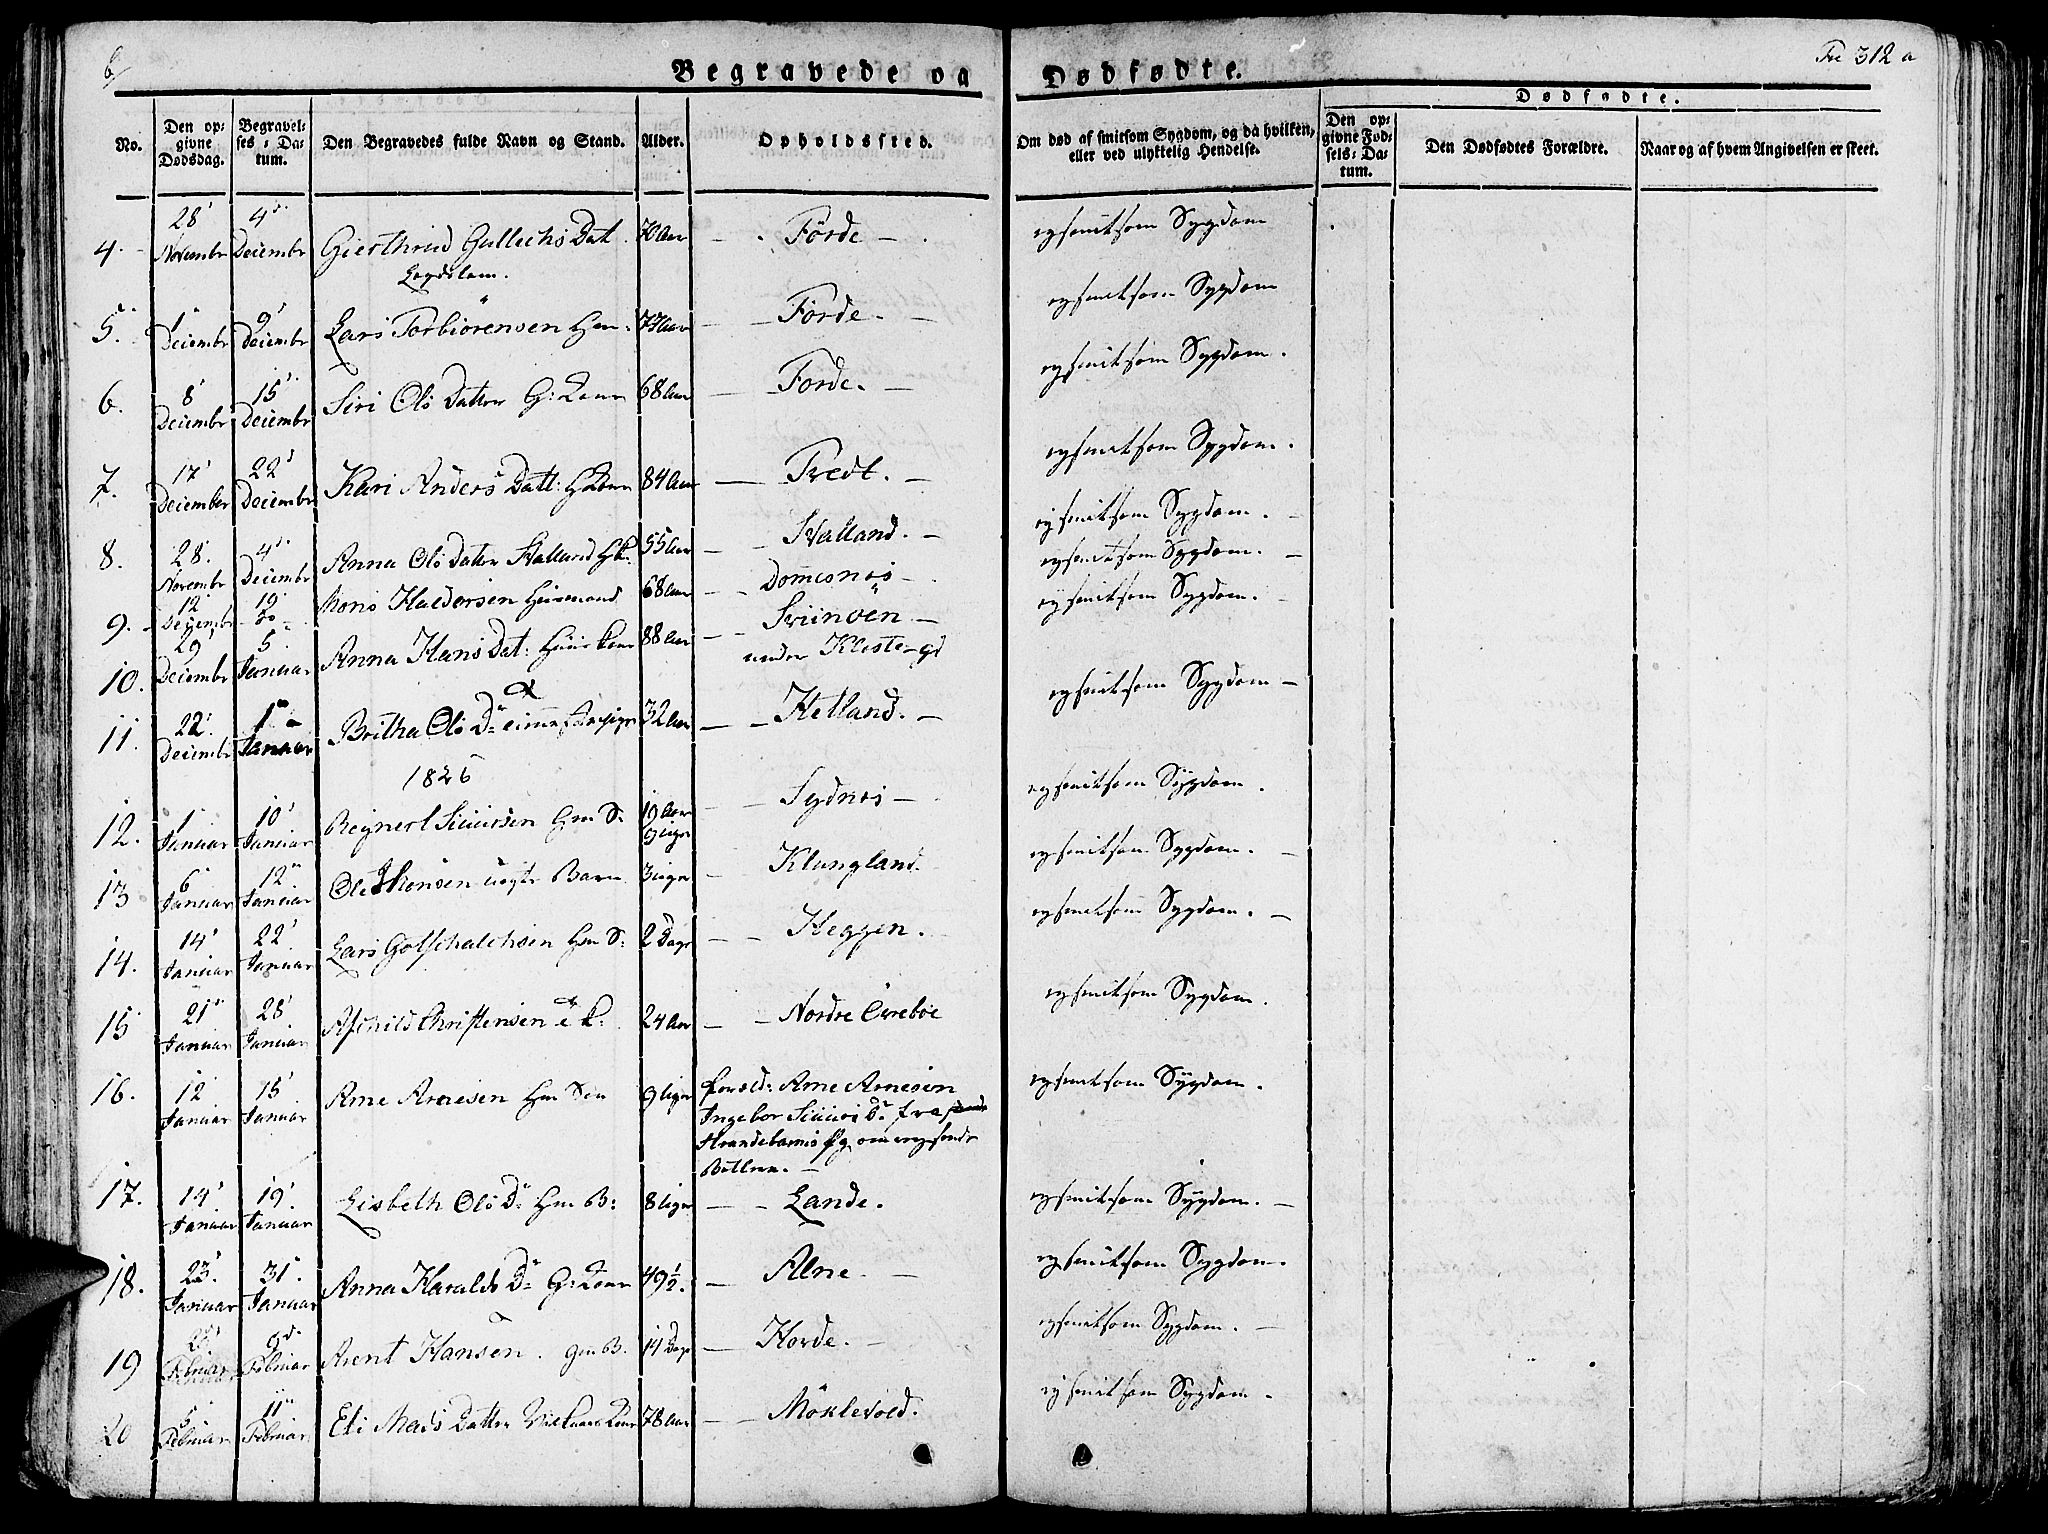 6/
Begravede og Dødfødte.
Fol 312 a
No. Den opgivne Dødsdag. Begravelses-Datum. Den Begravedes fulde Navn og Stand. Alder. Opholdssted. Om død af smitsom Sygdom, og da hvilken, eller ved ulyktelig Hendelse. Dødfødte. Den opgivne Fødsels-Datum. Den Dødfødtes Forældre. Naar og af hvem Angivelsen er skeet.
4. 28 November 4 December Gierthrud Gullechs Dat. 70 Aar Förde ey smitsom Sygdom
Legdslem.
5. 1 December 9 December Lars Torbiörensen Hm. 77 Aar Förde. ey smitsom Sygdom
6. 8 December 15 December Siri Ols Datter G: Kone 68 Aar Förde. ey smitsom Sygdom.
7. 17 December 22 December Kari Anders Datt: H Kone 84 Aar Tvedt. ey smitsom Sygdom.
8. 28. November 4 December Anna Ols Datter Skalland Hk. 55 Aar Skalland. ey smitsom Sygdom.
9. 12 December 19 Do Mons Haldorsen Huusmand 68 Aar Domesnes ey smitsom Sygdom.
10. 29 December 5 Januar Anna Hans Dat: Huus Kone 88 Aar Sviinöen under Kloster-gd ey smitsom Sygdom.
11. 22. December 1 Januar Britha Ols D. 32 Aar Hetland. ey smitsom Sygdom
1826
12. 1 Januar 10 Januar Reynert Siursen Gm S: 19 Aar 9 Uger Sydnes ey smitsom Sygdom.
13 6 Januar 12 Januar Ole uægte Barn 3 Uger Klungland. ey smitsom Sygdom.
14. 14 Januar 22 Januar Lars Gotschalchsen Hm S: 2 Dage Heggen. ey smitsom Sygdom.
15 21 Januar 28 Januar Aschild Christensen e k: 24 Aar Nordre Evreböe ey smitsom Sygdom.
16. 12 Januar 15 Januar Arne Arnesen Hm Søn 9 Uger Foræld: Arne Arnesen ey smitsom Sygdom.
Ingebor Siurs D. fra
Strandebarms Pg omreysende
Betlere.
17. 14 Januar 19 Januar Lisbeth Ols D. Hm B: 8 Uger Lande. ey smitsom Sygdom.
18. 23. Januar 31. Januar Anna Haralds D. G: Kone 49½. Alne. ey smitsom Sygdom.
19 Februar 9 Februar Arent Hansen. Gm B. 14 Dage Horde. ey smitsom Sygdom.
20 5 Februar 11 Februar Eli Mads Datter Vilkaars Kone 78 Aar Möklevold. ey smitsom Sygdom.